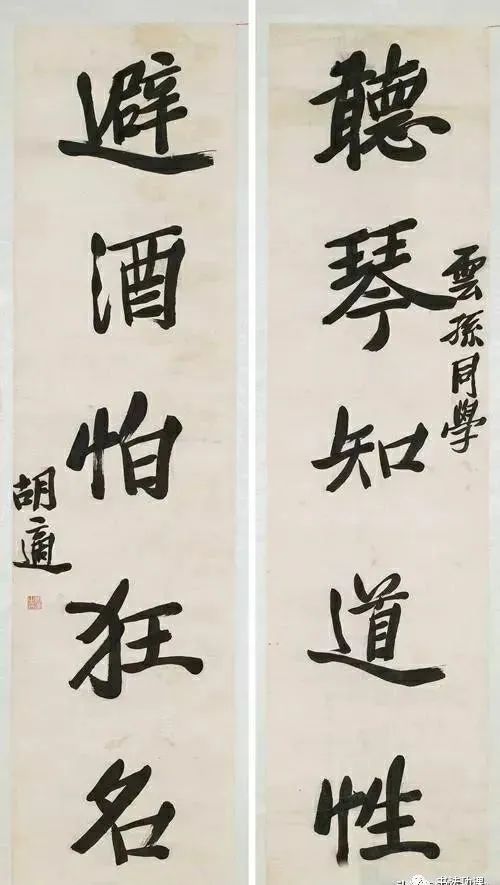 聽琴知道性
雲孫同學
避酒怕狂名
胡適
书法功课